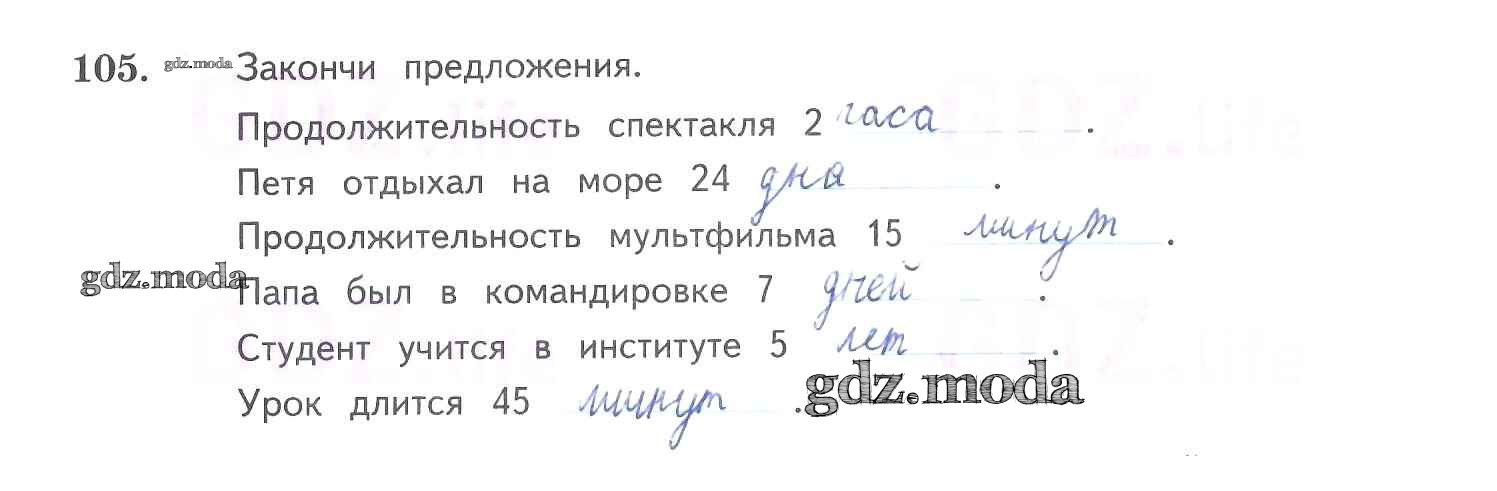 105. gdz.moda Закончи предложения.
Продолжительность спектакля 2 часа.
Петя отдыхал на море 24 дня.
Продолжительность мультфильма 15 минут.
gdz.moda
Папа был в командировке 7 дней.
Студент учится в институте 5 лет.
Урок длится 45 минут.
gdz.moda